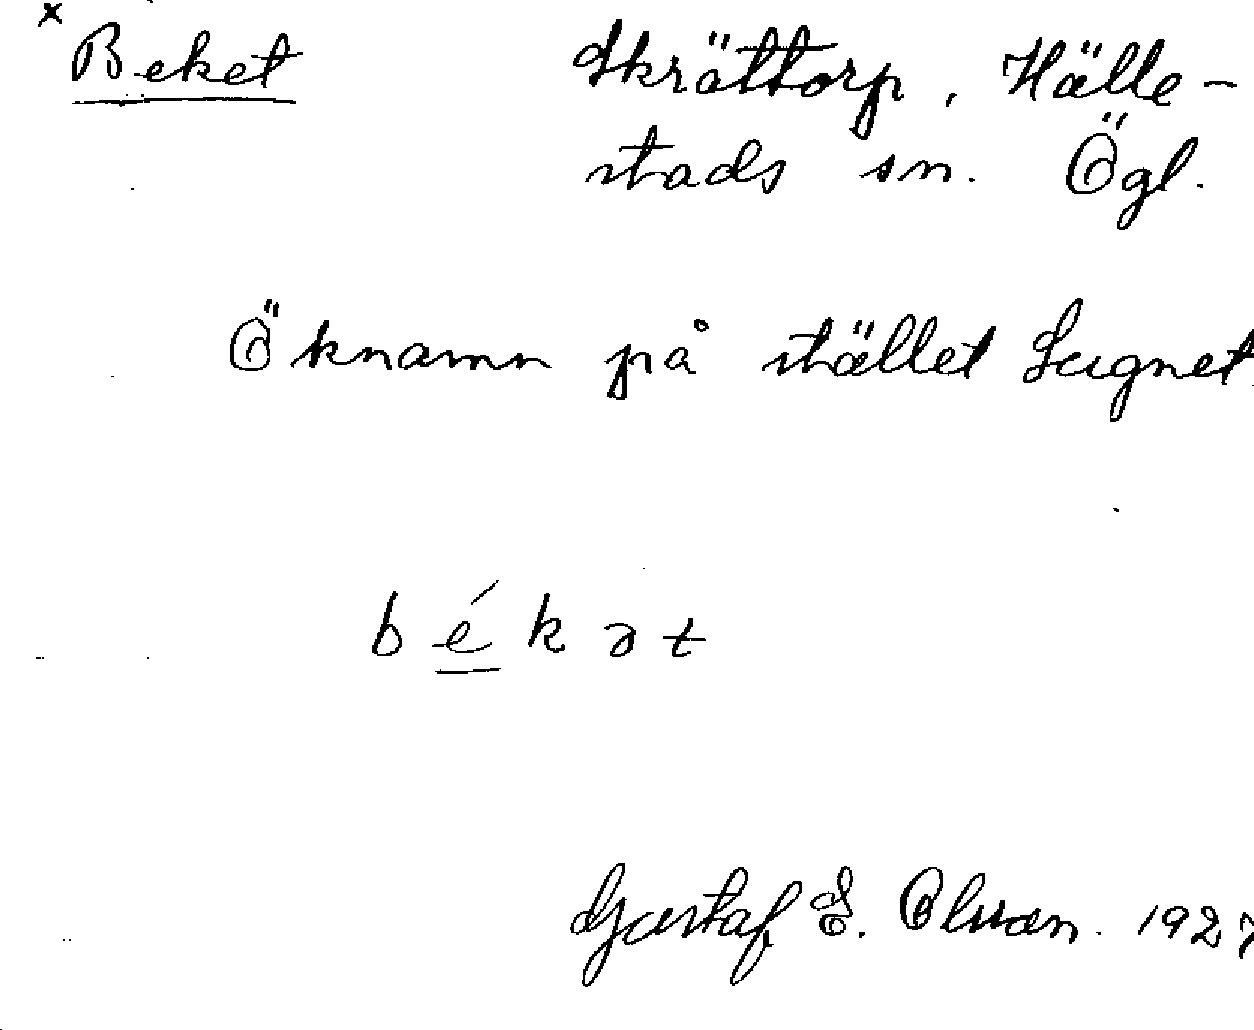 x Beket Skrättorp, Hälle-
stads sn. Ögl.
Öknamn på stället Lugnet.
b é k ə t
Gustaf E. Olsson. 1927